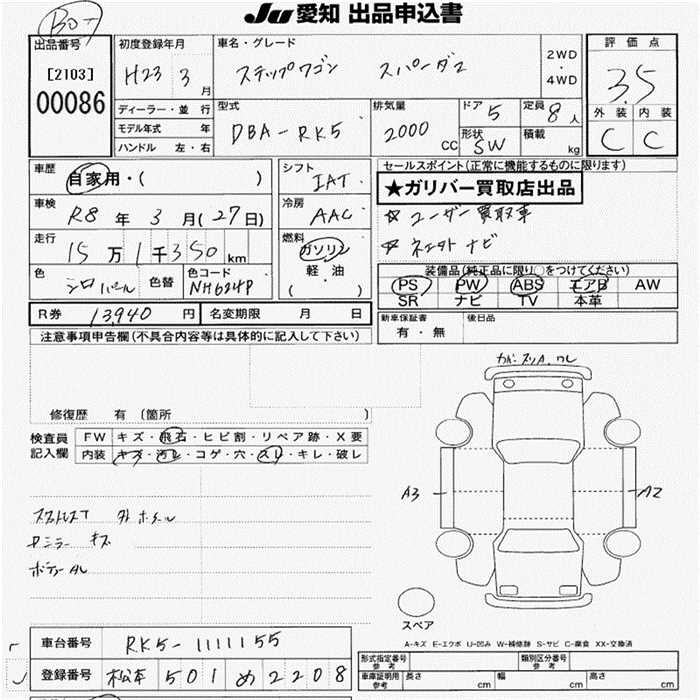 Ju 愛知 出品申込書
出品番号 [2103] 00086
初度登録年月 H23 3 月
車名・グレード ステップワゴン スパーダZ
2WD ・ 4WD
評価点 3.5
外装 C 内装 C
ディーラー・並行
モデル年式 年
ハンドル 左・右
型式 DBA-RK5
排気量 2000 CC
ドア 5
定員 8人
形状 SW
積載 kg
車歴 自家用・( )
車検 R8年 3月(27日)
走行 15万1千350km
色 シロパール 色替 色コード NH624P
シフト IAT
冷房 AAC
燃料 ガソリン・軽油・( )
セールスポイント(正常に機能するものに限ります)
★ガリバー買取店出品
☆ ユーザー買取車
ナビ
装備品(純正品に限り○をつけてください)
PS PW ABS エアB AW
SR ナビ TV 本革
R券 13,940 円 名変期限 月 日
新車保証書 有・無
後日品
注意事項申告欄(不具合内容等は具体的に記入して下さい)
修復歴 有(箇所 )
検査員記入欄
FW キズ・飛石・ヒビ割・リペア跡・X要
内装 キズ・汚レ・コゲ・穴・スレ・キレ・破レ
A3
A2
キズ
スペア
A-キズ E-エクボ U-凹み W-補修跡 S-サビ C-腐食 XX-交換済
車台番号 RK5-1111155
登録番号 松本 501 め 2208
形式指定番号 参考
類別区分番号 参考
車庫証明用 参考 長さ cm 幅 cm 高さ cm